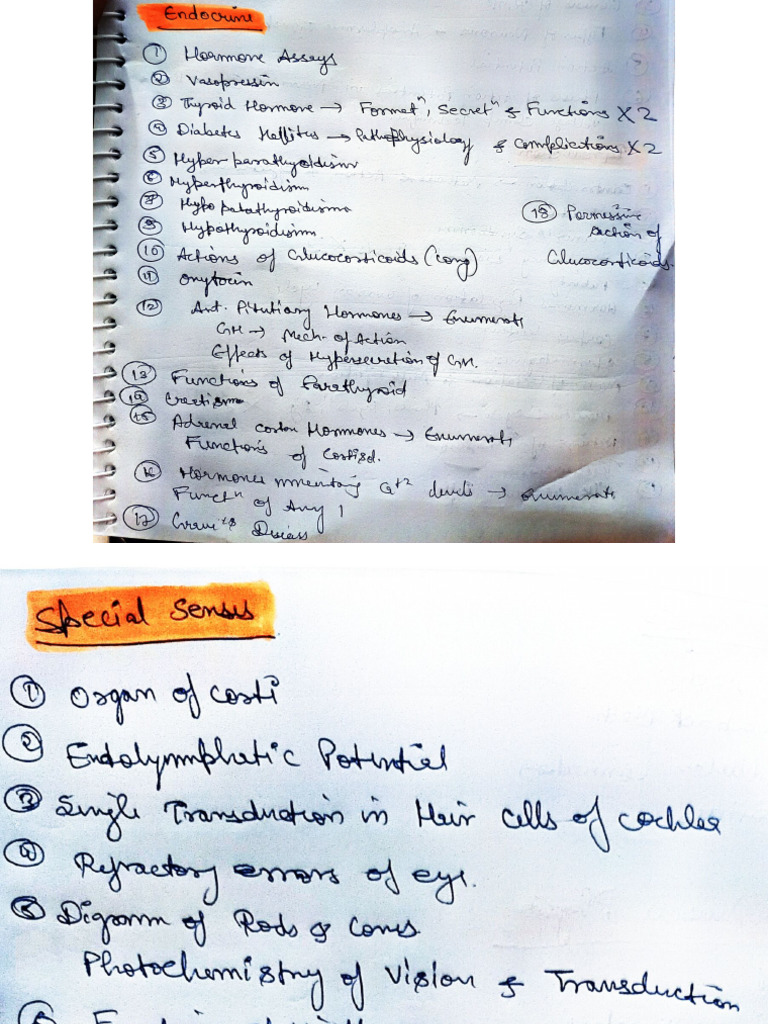 Endocrine
① Hormone Assays
② Vasopressin
③ Thyroid Hormone → Formatⁿ, Secretⁿ & Functions X2
④ Diabetes Mellitus → Pathophysiology & Complications X2
⑤ Hyper parathyroidism
⑥ Hyperthyroidism
⑧ Hypo parathyroidism
⑨ Hypothyroidism
⑩ Actions of Glucocorticoids (long)
⑪ Oxytocin
⑫ Ant. Pitutiary Hormones → Enumerate
GH → Mech. of Action
Effects of Hypersecretion of GH.
⑬ Functions of Parathyroid
⑭ Cretism
⑮ Adrenal cortex Hormones → Enumerate
Functions of Cortisol.
⑯ Hormones Ca⁺² levels → enumerate
Functⁿ of Any 1
⑰ Grave's Disease
⑱ Permissive
action of
Glucocorticoids.
Special Senses
① Organ of Corti
② Endolymphatic Potential
③ Single Transduction in Hair cells of cochlea
④ Refractory errors of eye.
⑤ Digram of Rods & Cones
Photochemistry of Vision & Transduction